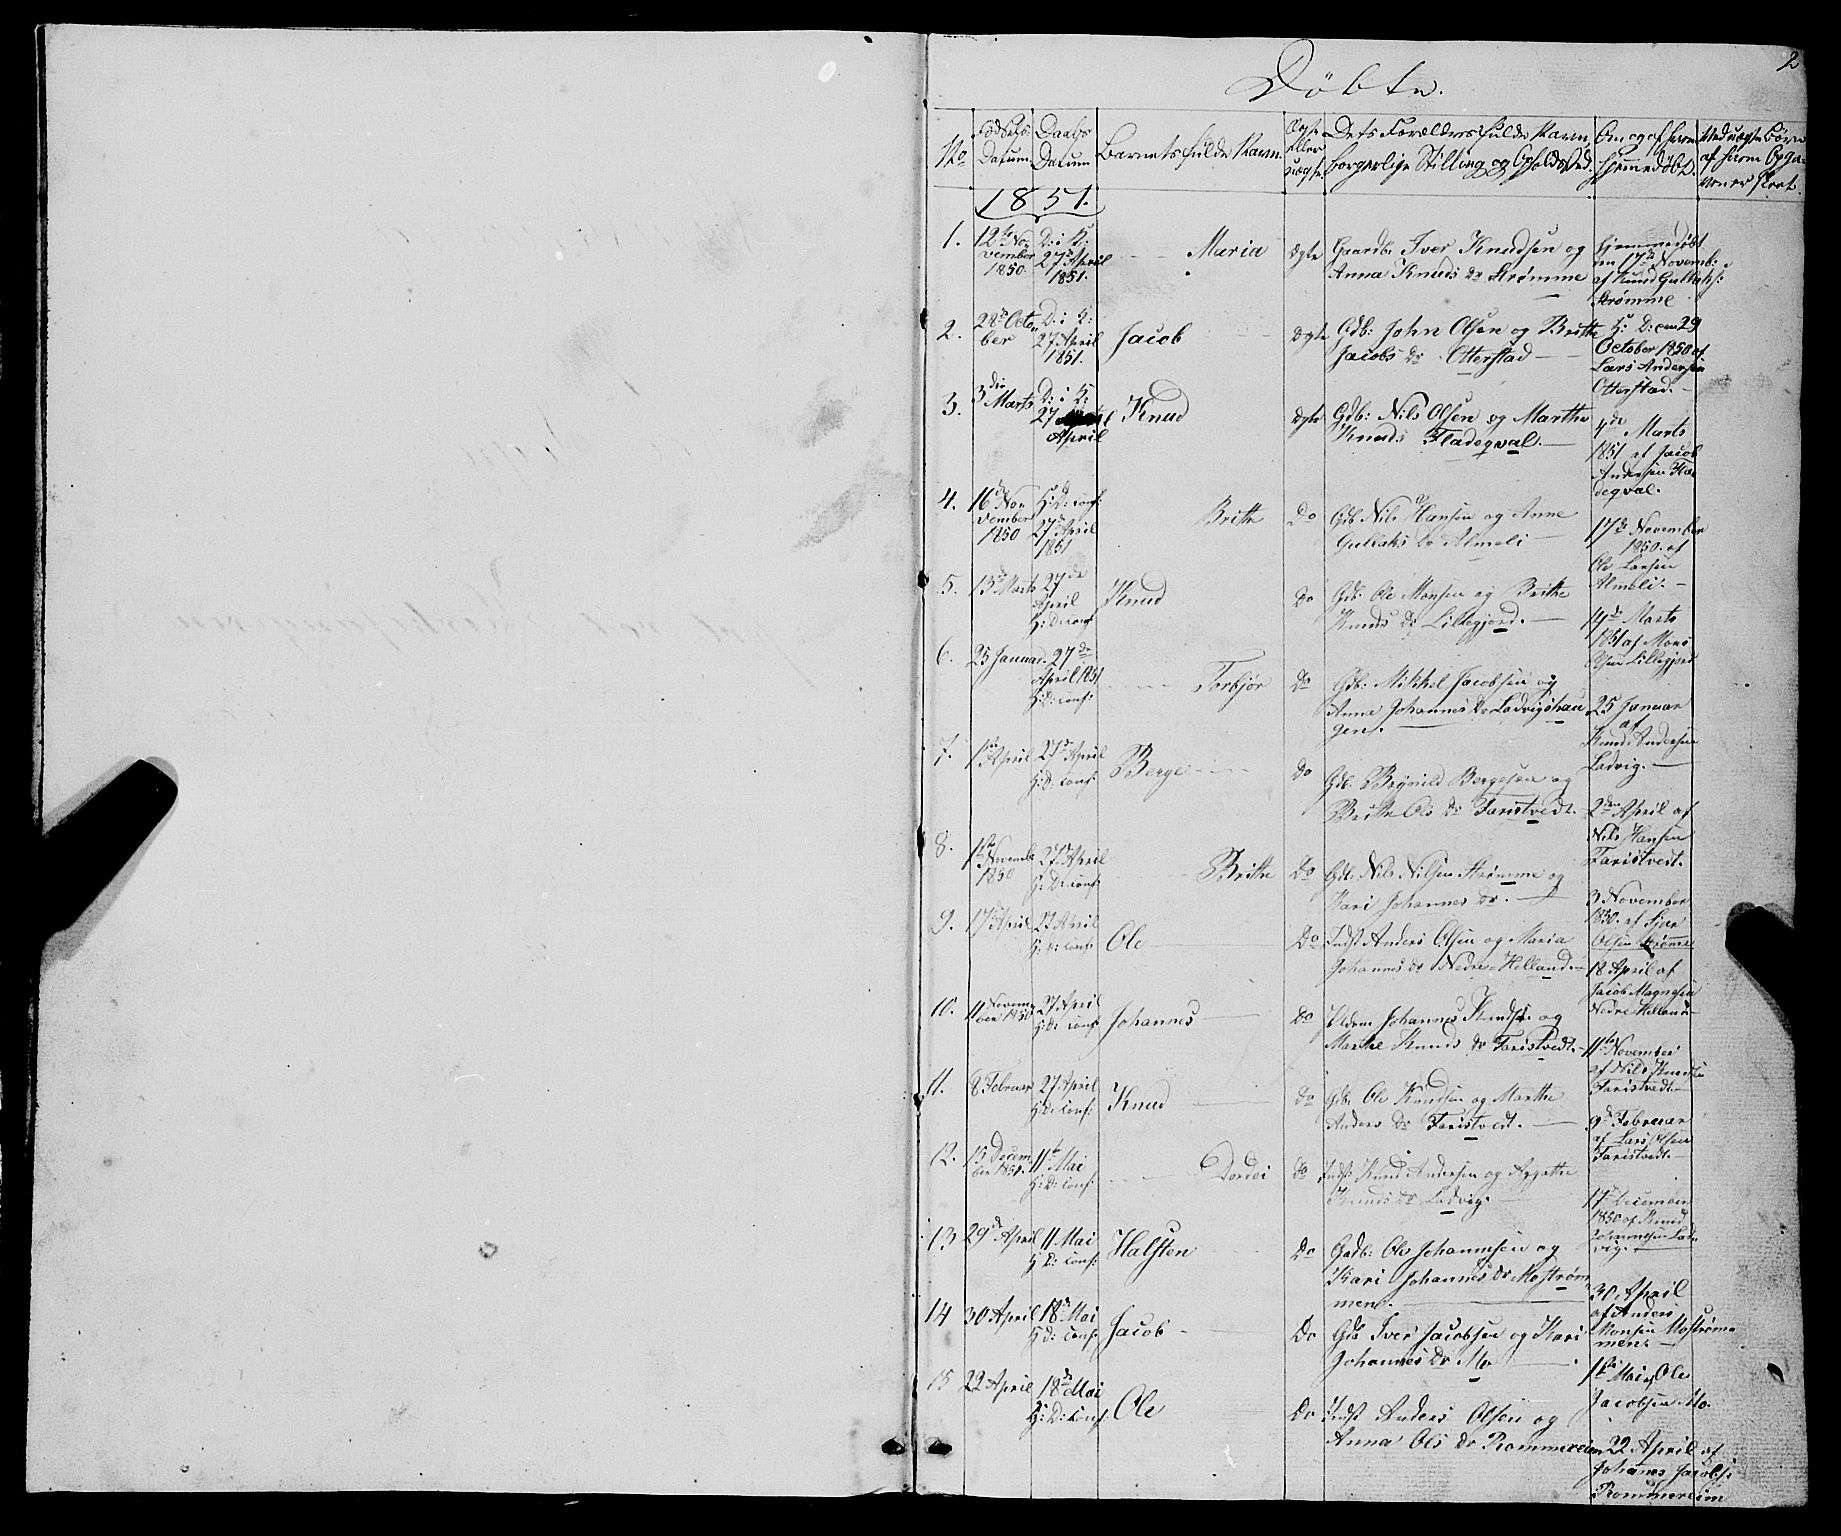 2
Döbte.
No
Fødsels Datum.
Daabs Datum
Barnets fulde Navn.
Ægte eller uægte.
Dets Forældres fulde Navn, borgerlige Stilling og Opholdssted.
Om og af hvem hjemmedøbt.
Ved uægte Børn af hvem Opgaven er skeet
1851.
1.
12te November 1850
D: i K: 27de April 1851.
Maria
ægte
Gaardb. Iver Knudsen og
Anna Knuds Dr Strømme
hjemmedøbt
den 17de Novemb:
af Knud Gullaks:
Strømme
2.
28de October
D: i K: 27 April 1851.
Jacob
ægte
Gdb: John Olsen og Brithe
Jacobs Dr Otterstad
H: D: den 29
October 1850 af
Lars Andersen
Otterstad.
3.
3die Marts
D: i K: 27 April
Knud
ægte
Gdb: Nils Olsen og Marthe
Knuds Fladeqval.
4de Marts
1851 af Jacob
Andersen Fladeqval.
4.
16de November 1850
H: D: conf: 27de April 1851
Brithe
Do
Gdb Nils Hansen og Anne
Gullaks Dr Almeli
17de November
1850. af
Ole Larsen
Almeli.
5.
13de Marts
27de April H: D: conf
Knud
Do
Gdb: Ole Monsen og Brithe
Knuds Dr Lillegjord.
14de Marts
1851 af Mons
Olsen Lillegjord
6.
25 Januar.
27de April 1851 H: D: conf:
Torbjør
Do
Gdb: Mikkel Jacobsen og
Anna Johannes Dr Ladvigshaugen.
25 Januar
af
Knud Andersen
Ladvig.
7.
1ste April
27de April H: D: conf:
Berge
Do
Gdb. Brynild Bergesen og
Brithe Ols Dr Faristvedt.
2den April af
Nils Hansen
Faristvest.
8.
1ste Novemb: 1850
27de April H: D: conf:
Brithe
Do
Gdb Nils Nilsen Strømme og
Kari Johannes Dr.
3 November
1850. af
Olsen Strømme
9.
17de April
27 April H: D: conf:
Ole
Do
Indst Anders Olsen og Maria
Johannes Dr Nedre-Helland.
18 April af
Jacob Magnesen
Nedre Helland
10.
11 November 1850
27 April H: D: conf
Johannes
Do
Johannes Knudsen og
Marthe Knuds Dr Faristvedt.
11te November
af Nils Knudsen
Faristvedt.
11.
8 Februar
27 April H: D: conf:
Knud
Do
Gdb. Ole Knudsen og Marthe
Anders Dr Faristvedt.
9de Februar
af Lars Olsen
Faristvedt.
12.
15 December 1850.
11te Mai H: D: conf:
Dordei
Do
Indst: Knud Andersen og Aggathe
Knuds Dr Ladvig.
17de December
1850 af Knud
Johannesen Ladvig.
13
29de April
11 Mai H: D: conf:
Halsten
Do
Gadb: Ole Johannesen og
Kari Johannes Dr Mostrømmen.
30 April
af Anders
Monsen Mostrømmen.
14
30 April
18de Mai H: D: conf:
Jacob
Do
Gdb Iver Jacobsen og Kari
Johannes Dr Mo
1ste Mai af Ole
Jacobsen Mo.
15
22 April
18de Mai H: D: conf.
Ole
Do
Indst Anders Olsen og
Anna Ols Dr Rommereim
22 April af
Johannes Jacobs:
Rommereim